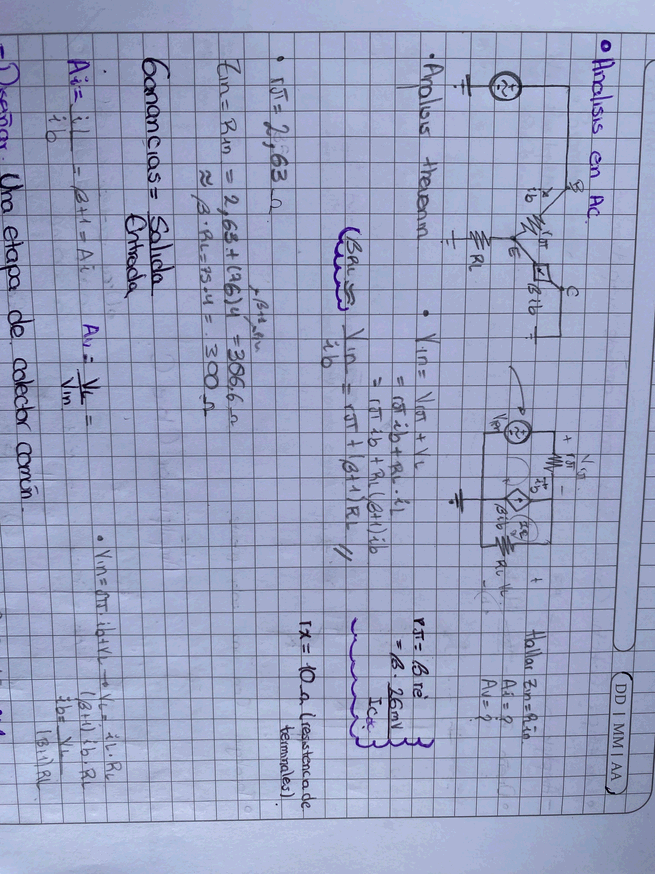 DD | MM | AA
• Analisis en AC.
B
C
ib
rπ
βib
E
RL
Vrπ
+ rπ -
ib
Vin
βib
RL
VL
+
Hallar Zin = Rin
Ai = ?
Av = ?
• Analisis thevenin
• Vin = Vrπ + VL
= rπ ib + RL · iL
= rπ ib + RL (β+1) ib
(βRL ≈ Vin/ib = rπ + (β+1) RL //
rπ = β re
= β · 26mV/Icq
rx = 10 Ω (resistencia de
terminales).
• rπ = 2,63 Ω
Zin = Rin = 2,63 + (76)4 = 306,6 Ω
≈ β · RL = 75·4 = 300 Ω
Ganancias = Salida/Entrada
Ai = iL/ib = β+1 = Ai
Av = VL/Vin =
• Vin = rπ · ib + VL → VL = iL · RL
(β+1) · ib · RL
ib = VL/(β+1)RL
= Diseñar: Una etapa de colector común.